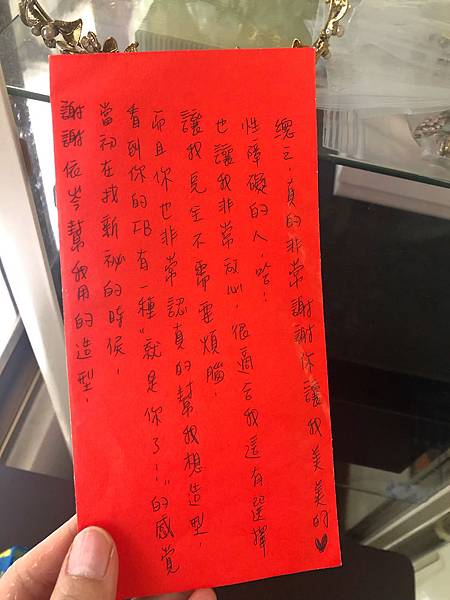 謝謝依岑幫我用的造型，
當初在找新祕的時候，
看到你的FB有一種"就是你了！"的感覺
而且你也非常認真的幫我想造型，
讓我完全不需要煩腦，
也讓我非常放心，很適合我這有選擇
性障礙的人，哈！
總之，真的非常謝謝你讓我美美的♥